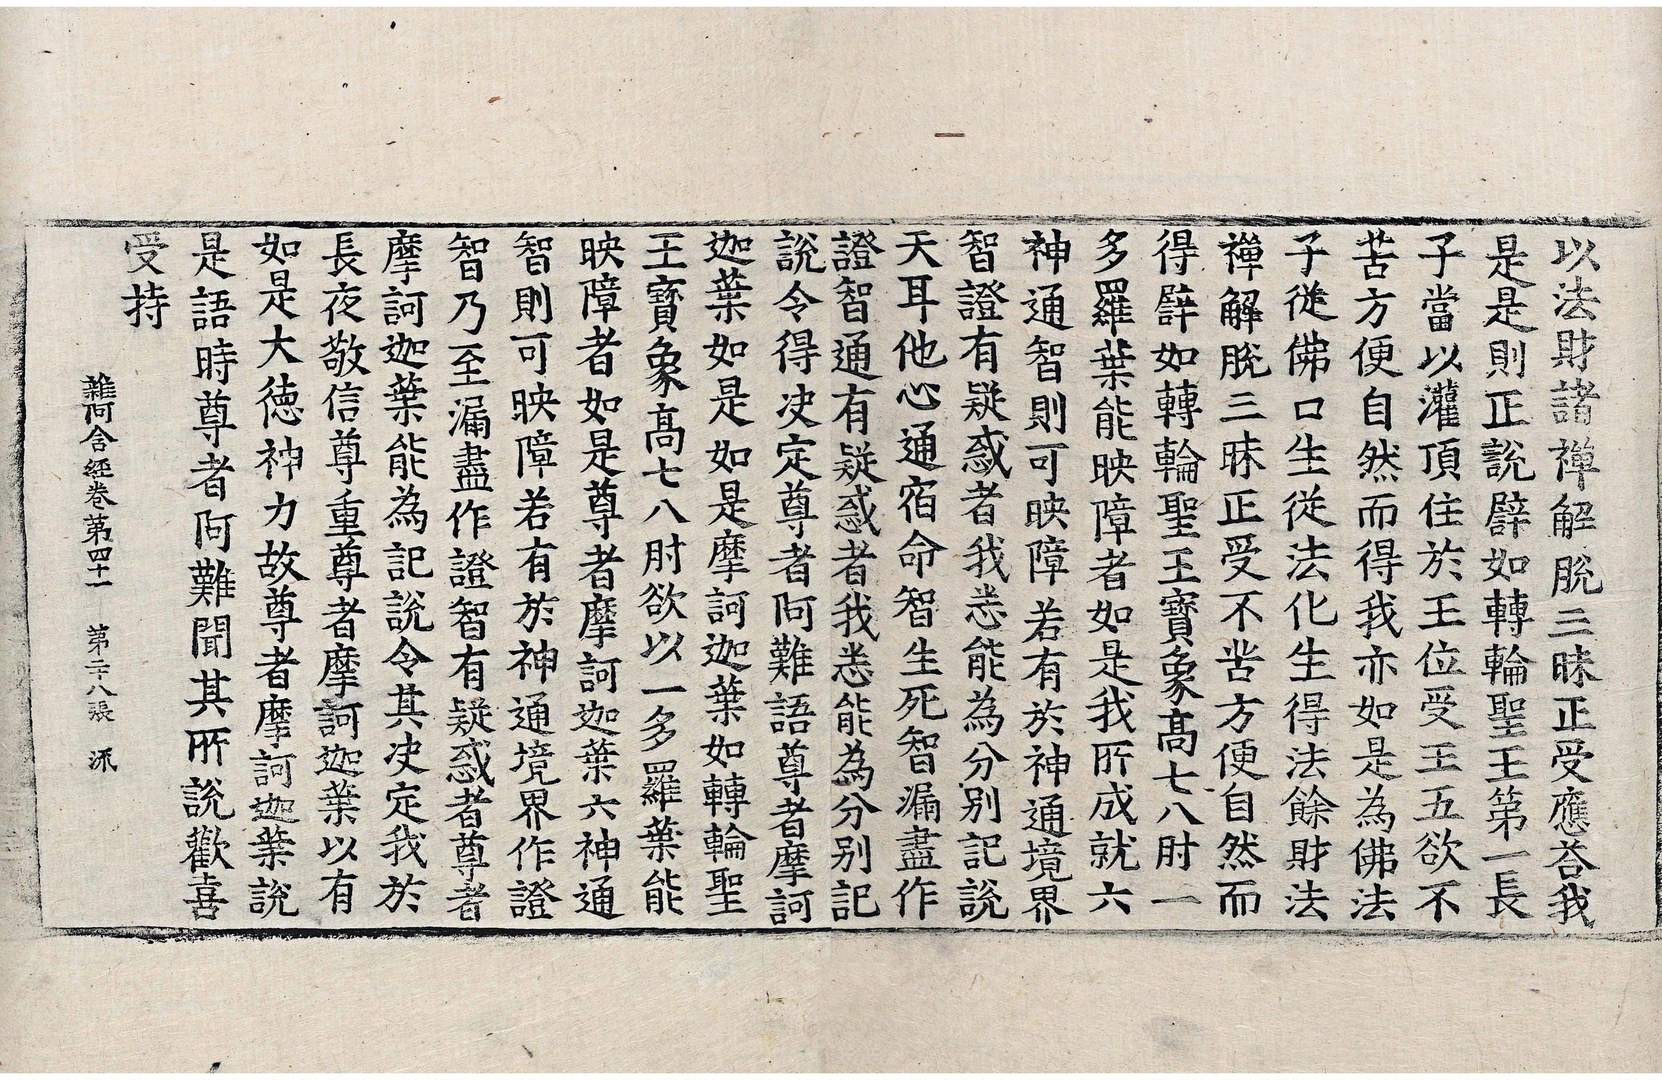 以法財諸禪解脫三昧正受應荅我
是是則正說譬如轉輪聖王第一長
子當以灌頂住於王位受王五欲不
苦方便自然而得我亦如是為佛法
子從佛口生從法化生得法餘財法
禪解脫三昧正受不苦方便自然而
得譬如轉輪聖王寶象高七八肘一
多羅葉能映障者如是我所成就六
神通智則可映障若有於神通境界
智證有疑惑者我悉能為分別記說
天耳他心通宿命智生死智漏盡作
證智通有疑惑者我悉能為分別記
說令得决定尊者阿難語尊者摩訶
迦葉如是如是摩訶迦葉如轉輪聖
王寶象高七八肘欲以一多羅葉能
映障者如是尊者摩訶迦葉六神通
智則可映障若有於神通境界作證
智乃至漏盡作證智有疑惑者尊者
摩訶迦葉能為記說令其决定我於
長夜敬信尊重尊者摩訶迦葉以有
如是大德神力故尊者摩訶迦葉說
是語時尊者阿難聞其所說歡喜
受持
雜阿含經卷第四十一 第二十八張 㳅